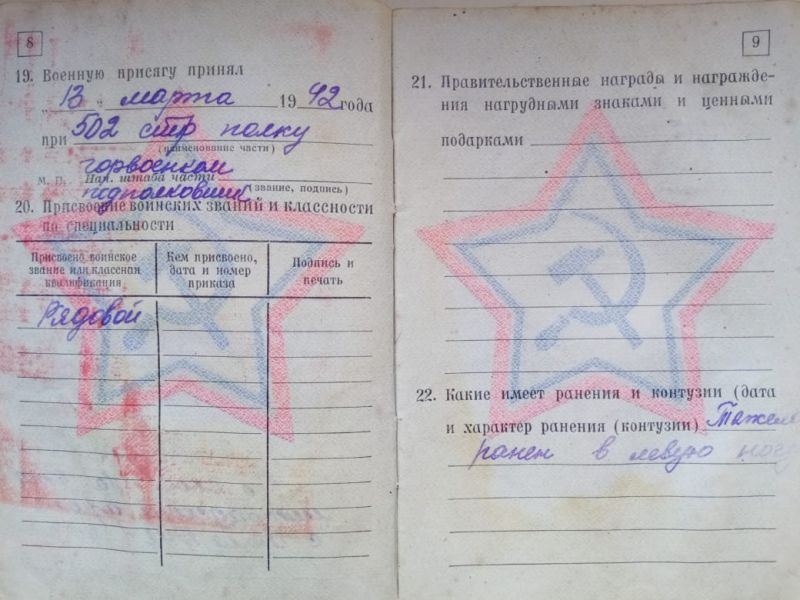 8
19. Военную присягу принял
„13 “ марта 1942 года
при 502 стр полку
(наименование части)
горвоенком
М. П. Нач. штаба части
подполковник (звание, подпись)
20. Присвоение воинских званий и классности
по специальности
Присвоено воинское
звание или классная
квалификация
Кем присвоено,
дата и номер
приказа
Подпись и
печать
Рядовой
9
21. Правительственные награды и награжде-
ния нагрудными знаками и ценными
подарками
22. Какие имеет ранения и контузии (дата
и характер ранения (контузии) Тяжело
ранен в левую ногу